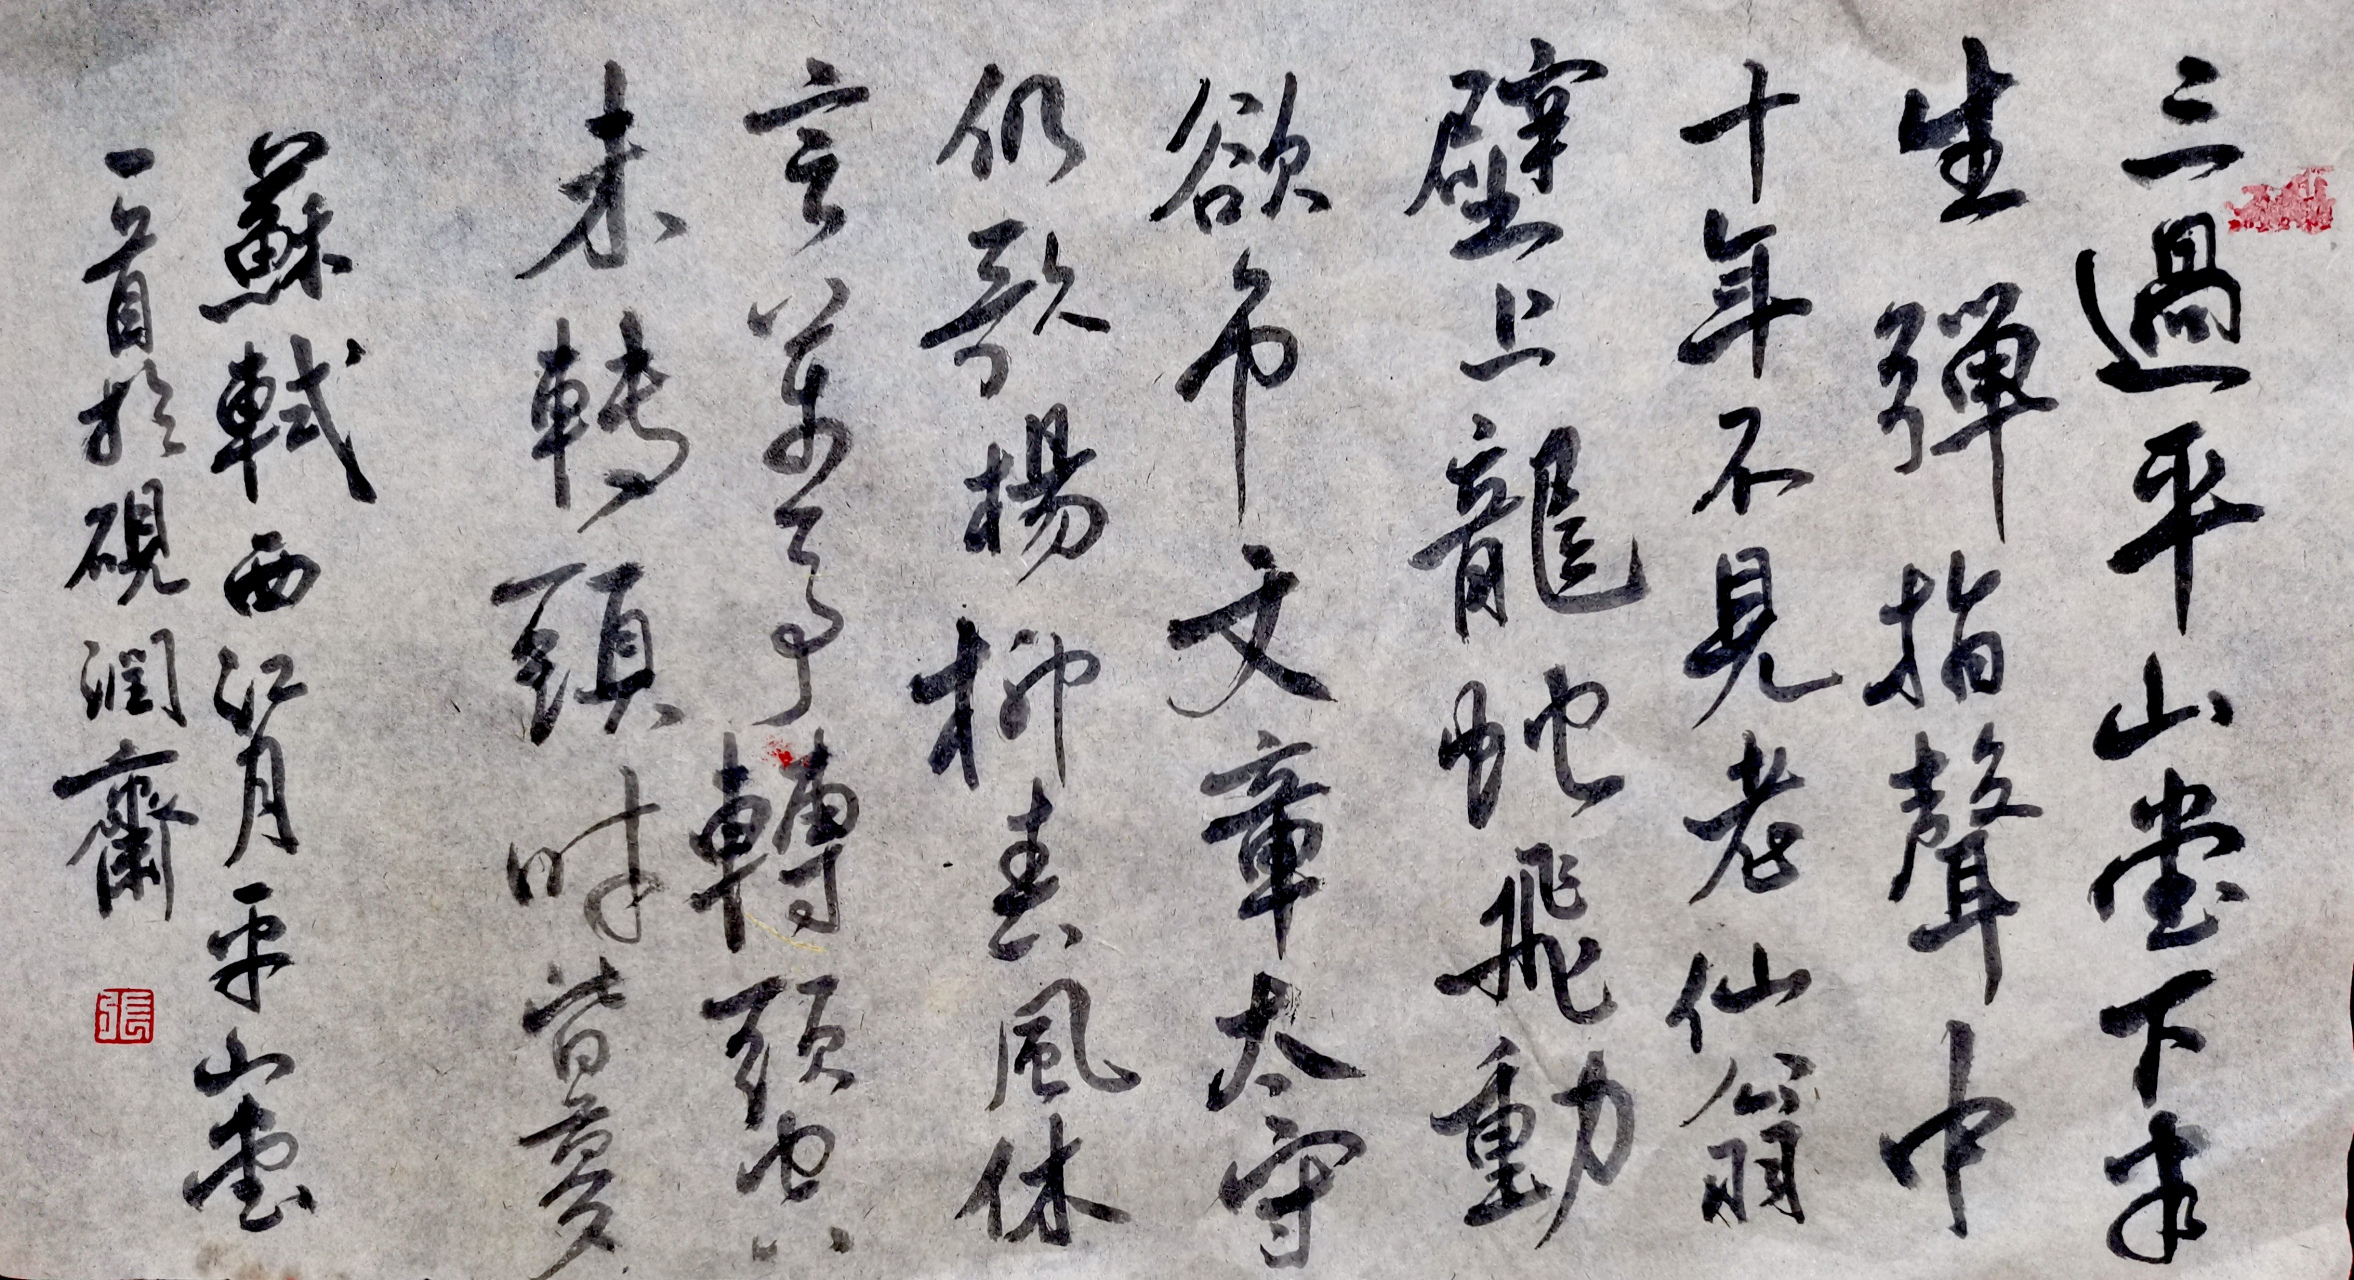 三過平山堂下半
生彈指聲中
十年不見老仙翁
壁上龍蛇飛動
欲吊文章太守
仍歌楊柳春風休
言萬事轉頭空
未轉頭時皆夢
蘇軾西江月平山堂
一首於硯潤齋
張